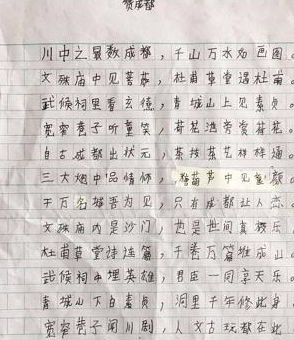 赞成都
川中之景数成都，千山万水如画图。
文殊庙中见菩萨，杜甫草堂遇杜甫。
武候祠里看玄德，青城山上见素贞。
宽窄巷子听童笑，荷花池旁赏荷花。
自古成都出状元，茶技茶艺样样通。
三大炮中品情怀，中见童颜。
千万名城吾为见，只有成都壮人杰。
文殊庙内是沙门，也是世间真极乐，
杜甫草堂诗连篇，千卷万篇堆成山。
武候祠中埋英雄，君臣一同享天乐。
青城山下白素贞，洞里千年修此身，
宽窄巷子闹川剧，人文古玩都在此